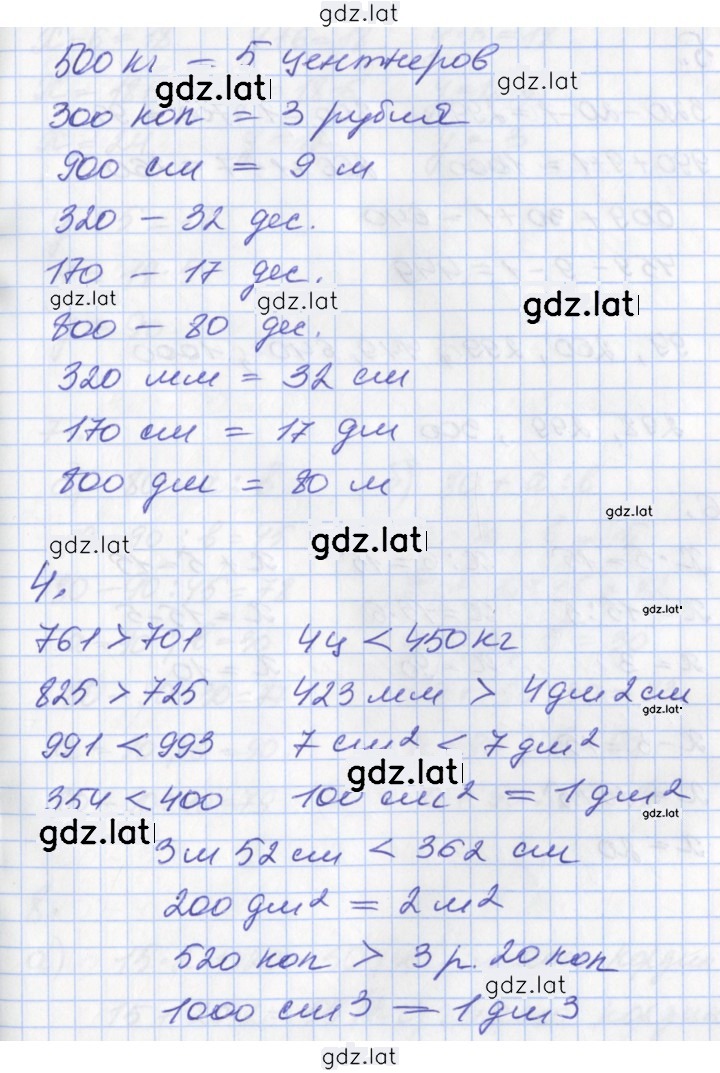 gdz.lat
500 кг – 5 центнеров
gdz.lat gdz.lat
300 коп = 3 рубля
900 см = 9 м
320 – 32 дес.
170 – 17 дес.
gdz.lat gdz.lat gdz.lat
800 – 80 дес.
320 мм = 32 см
170 см = 17 дм
800 дм = 80 м
gdz.lat
gdz.lat gdz.lat
4.
gdz.lat
761 > 701 4ц < 450 кг
825 > 725 423 мм > 4 дм 2 см
gdz.lat
991 < 993 7 см² < 7 дм²
gdz.lat
354 < 400 100 см² = 1 дм²
gdz.lat gdz.lat
3 м 52 см < 362 см
200 дм² = 2 м²
520 коп > 3 р. 20 коп
gdz.lat
1000 см3 = 1 дм3
gdz.lat